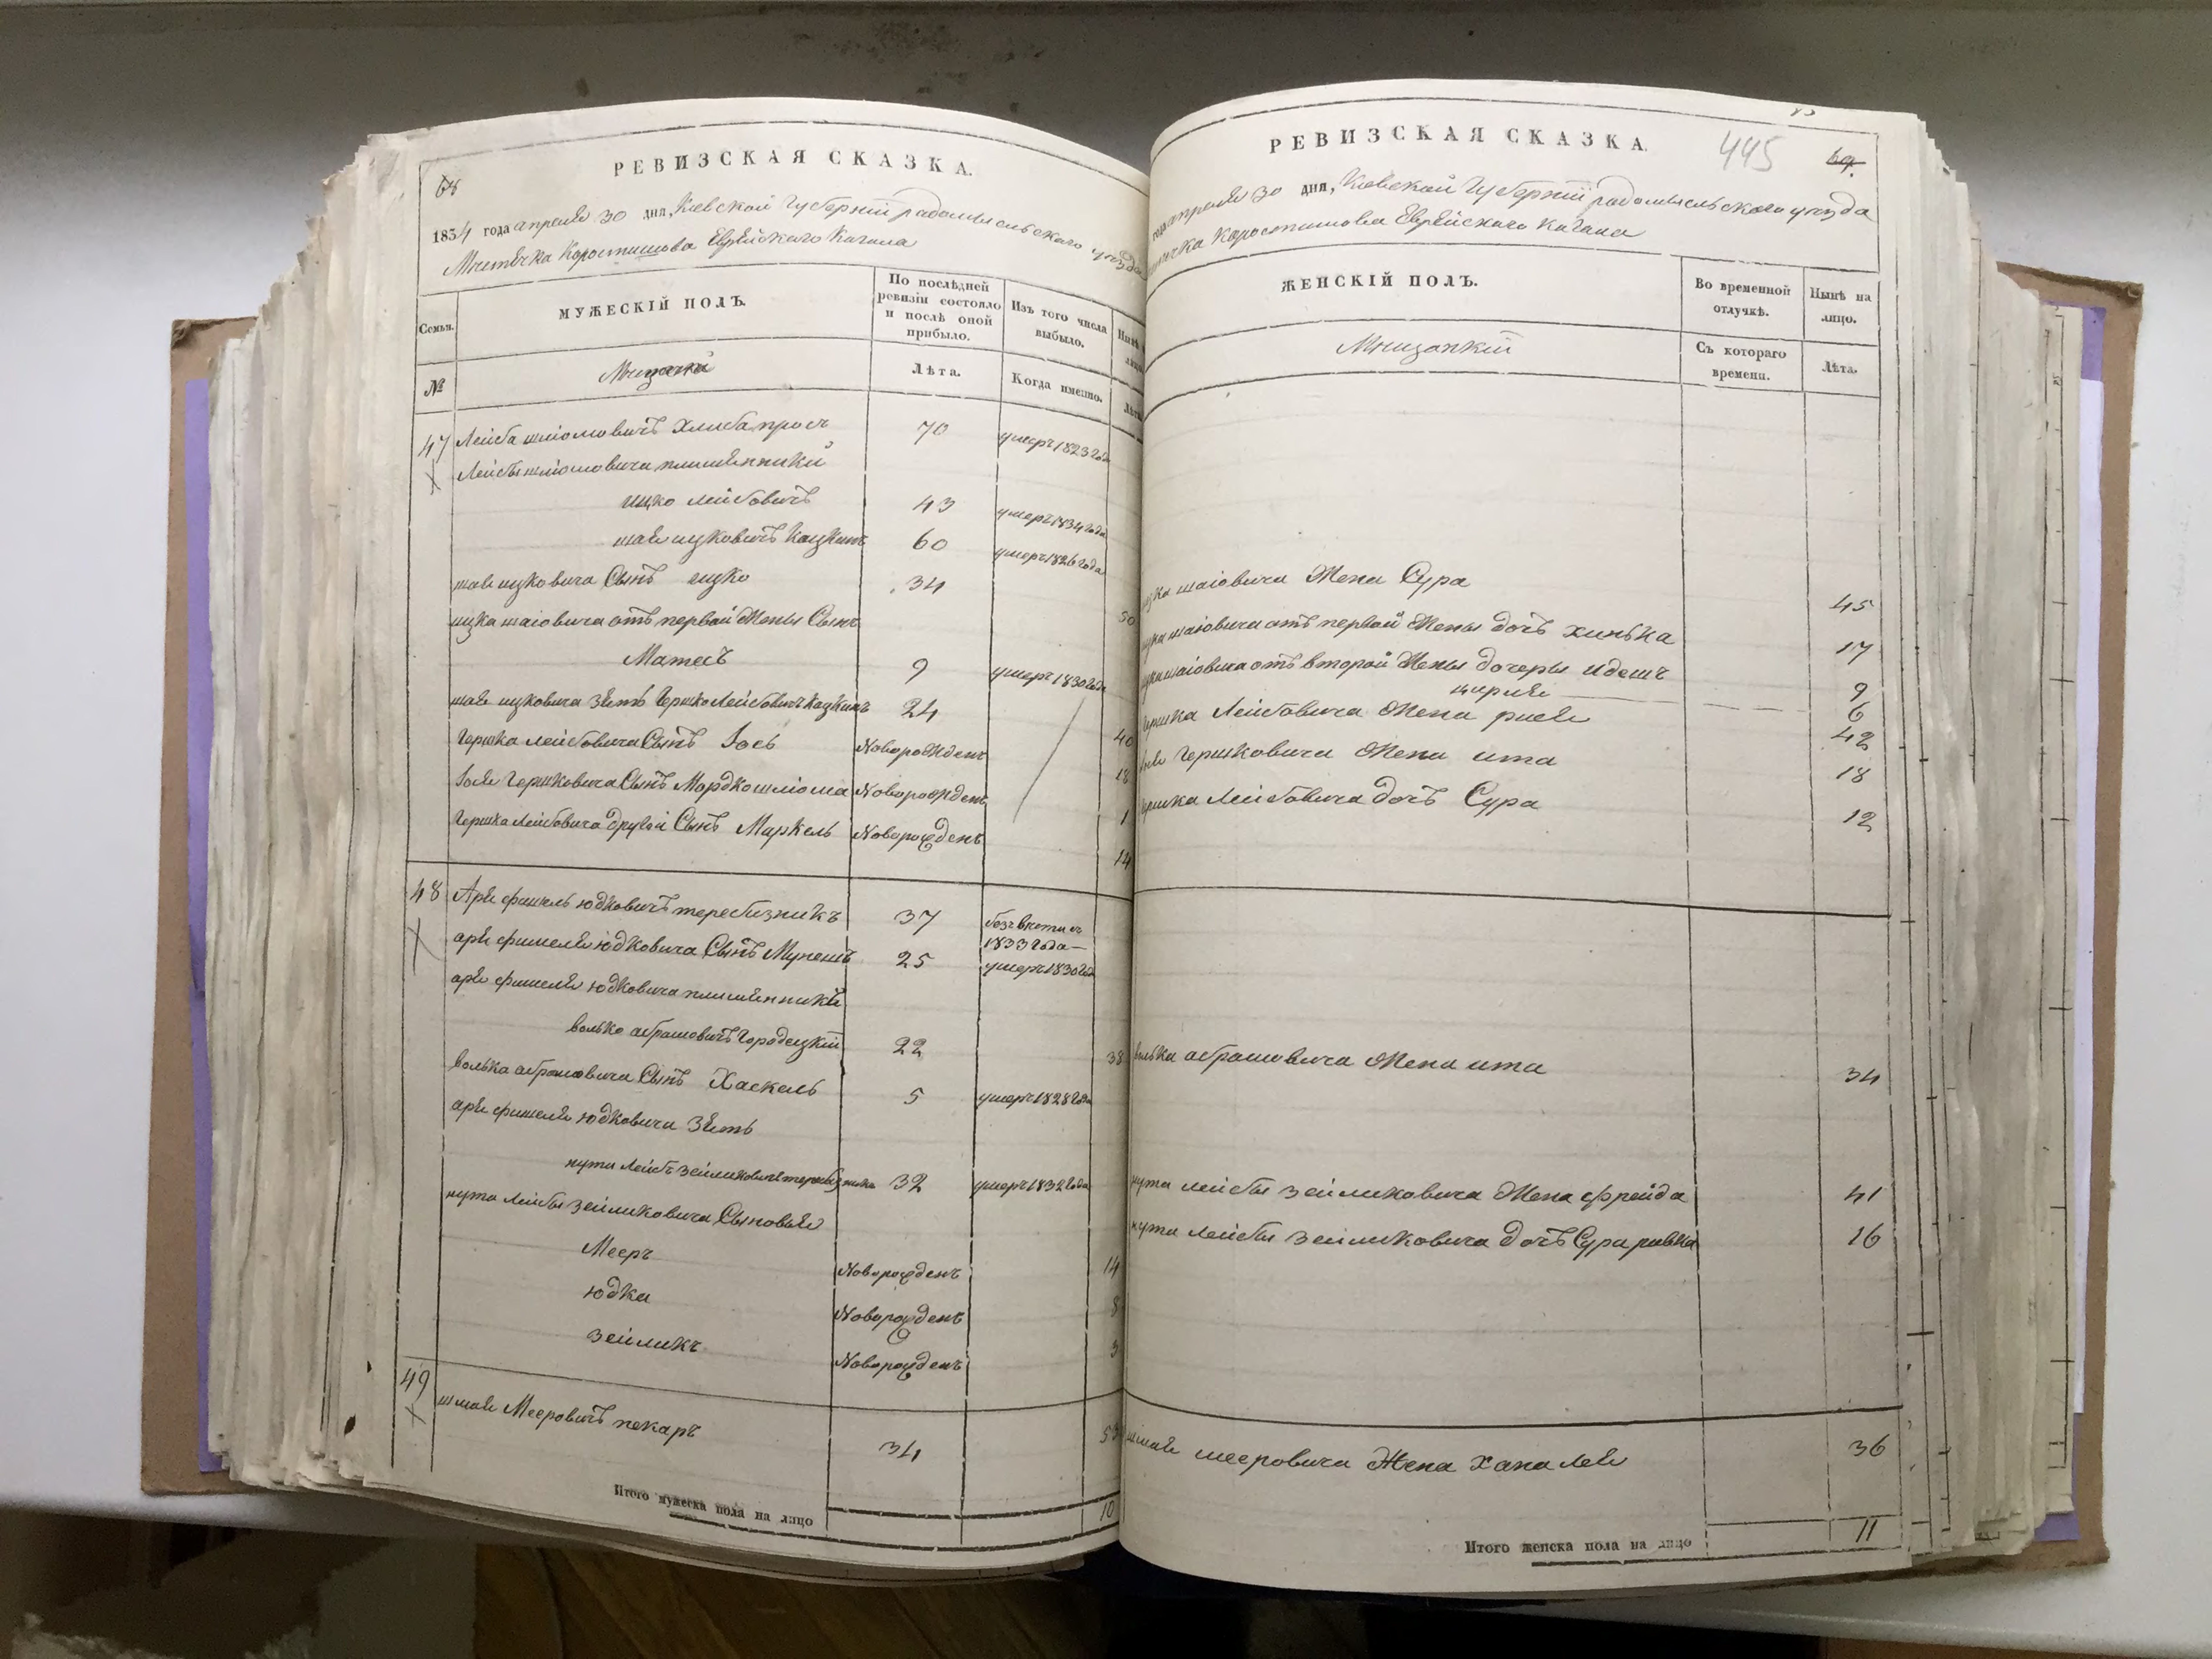 68
РЕВИЗСКАЯ СКАЗКА.
1834 года апреля 30 дня, Киевской Губернии радомысльского уезда
Местечка Коростишова Еврейского Кагала
Семьи.
МУЖЕСКІЙ ПОЛЪ.
По послѣдней ревизіи состояло и послѣ оной прибыло.
Изъ того числа выбыло.
№
Лѣта.
Когда именно.
47 Лейба шліомовичъ Хлеба 70 умеръ 1823 года
Лейбы шліомовича племенники
ицко лейбовичъ 43 умеръ 1834 года
шае ицковичъ 60 умеръ 1826 года
шае ицковича Сынъ ицко 34 50
ицка шаіовича отъ первой Жены Сынъ
Матесъ 9 умеръ 1830 года
шае ицковича зять Гершко Лейбовичъ 24 40
Гершка лейбовича Сынъ Іось Новорожденъ 18
Іося Гершковича Сынъ Мордко шліома Новорожденъ 1
Гершка Лейбовича другой Сынъ Маркель Новорожденъ 14
48 Аріе фишель юдковичъ теребизникъ 37 1833 года
аріе фишеля юдковича Сынъ 25 умеръ 1830 года
аріе фишеля юдковича племенники
волько абрамовичъ Городецкій 22 38
волька абрамовича Сынъ Хаскель 5 умеръ 1828 года
аріе фишеля юдковича зять
нута Лейбъ зейликовичъ 32 умеръ 1832 года
нута Лейбы зейликовича Сыновья
Мееръ Новорожденъ 14
юдка Новорожденъ 8
зейликъ Новорожденъ 3
49 шмае Мееровичъ пекаръ 34
Итого мужеска пола на лицо 10
РЕВИЗСКАЯ СКАЗКА.
445
69.
года апреля 30 дня, Киевской Губернии радомысльского уезда
Коростишова Еврейского Кагала
ЖЕНСКІЙ ПОЛЪ.
Во временной отлучкѣ.
Нынѣ на лицо.
Съ котораго времени.
Лѣта.
ицка шаіовича Жена Сура 45
ицка шаіовича отъ первой Жены дочь хинька 17
ицка шаіовича отъ второй Жены дочеры идесъ 9
цирля 6
Гершка Лейбовича Жена рися 42
Іося Гершковича Жена ита 18
Гершка Лейбовича дочь Сура 12
волька абрамовича Жена ита 34
нута лейбы зейликовича Жена фрейда 41
нута лейбы зейликовича дочь Сура ривка 16
шмае мееровича Жена хана лея 36
Итого женска пола на лицо 11